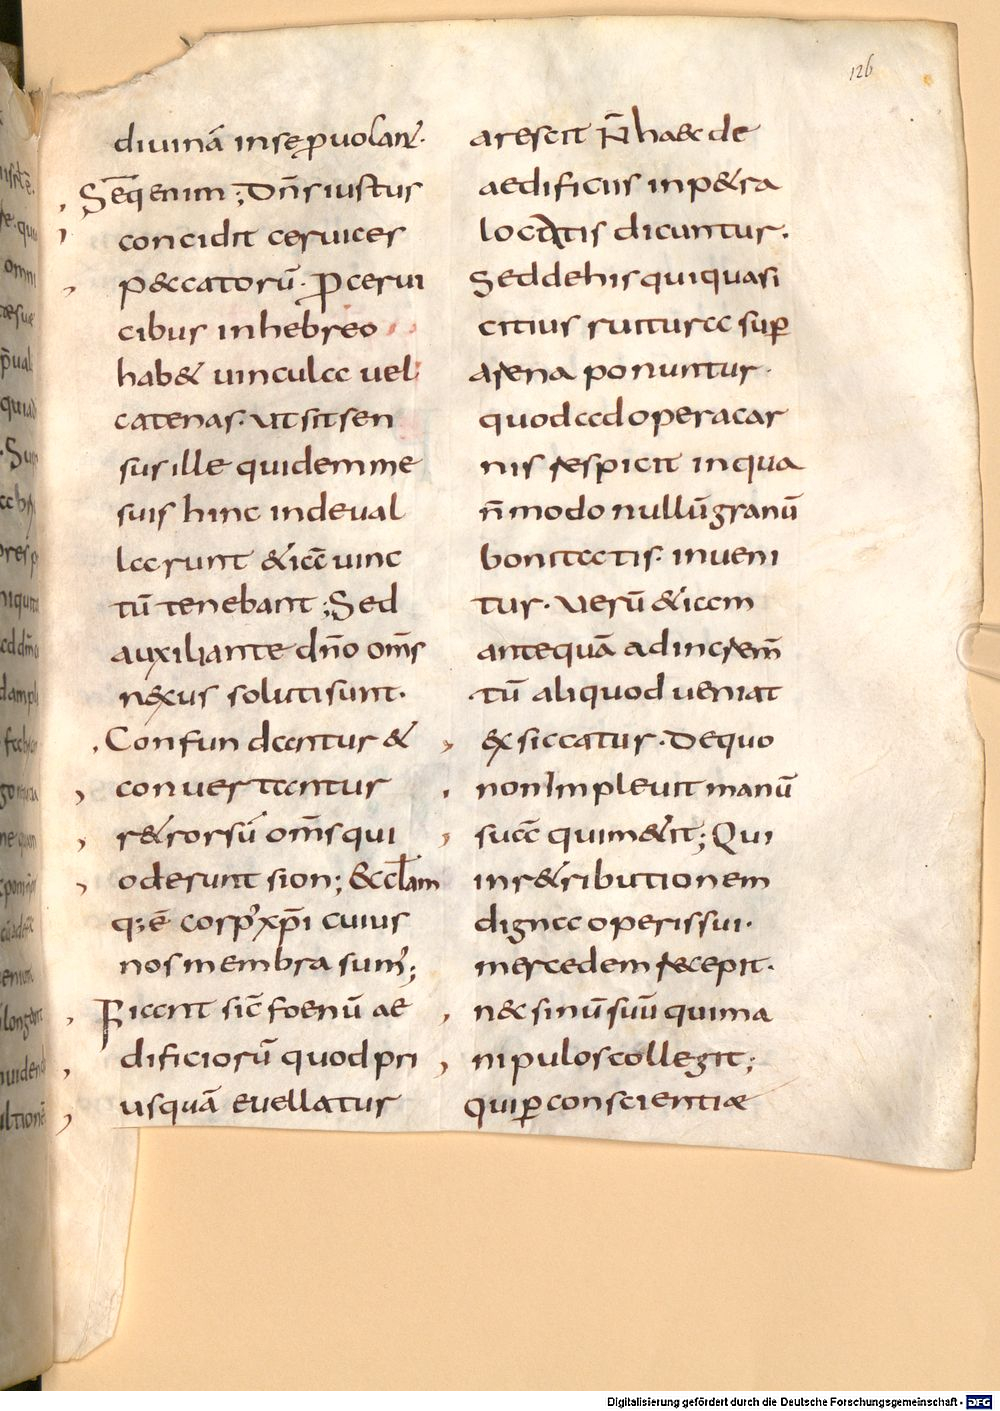 126
diuinā insę ꝓuolant᷒·
Seq̄ enim ; Dn̄s iustus
concidit ceruices
p&catorū· ꝓ cerui
cibus in hebreo
hab& uincula uel
catenas· ut sit sen
sus ille quidem me
suis hinc inde ual
larunt & iā uinc
tū tenebant ; Sed
auxiliante dn̄o om̄s
n&xus soluti sunt·
Confundantur &
conuertantur
r&rorsū om̄s qui
oderunt sion ; & ęclam
q; ē corp᷒ xp̄i cuius
nos membra sum᷒ ;
Fiant sic̄ foenū ae
dificiorū quod pri
usquā euellatur
arescit N̄ haec de
aedificiis in p&ra
locatis dicuntur·
Sed de his qui quasi
citius ruitura suꝑ
arena ponuntur·
quod ad opera car
nis respicit in qua
n̄ modo nullū granū
bonitatis· inueni
tur· Uerū & iam
antequā ad increm̄
tū aliquod ueniat
&xsiccatur· De quo
non Impleuit manū
suā qui m&it ; Qui
in r&ributionem
digna operis sui·
mercedem recepit·
n&c sinū suū qui ma
nipulos collegit ;
qui ꝑ conscientiae
Digitalisierung gefördert durch die Deutsche Forschungsgemeinschaft - DFG